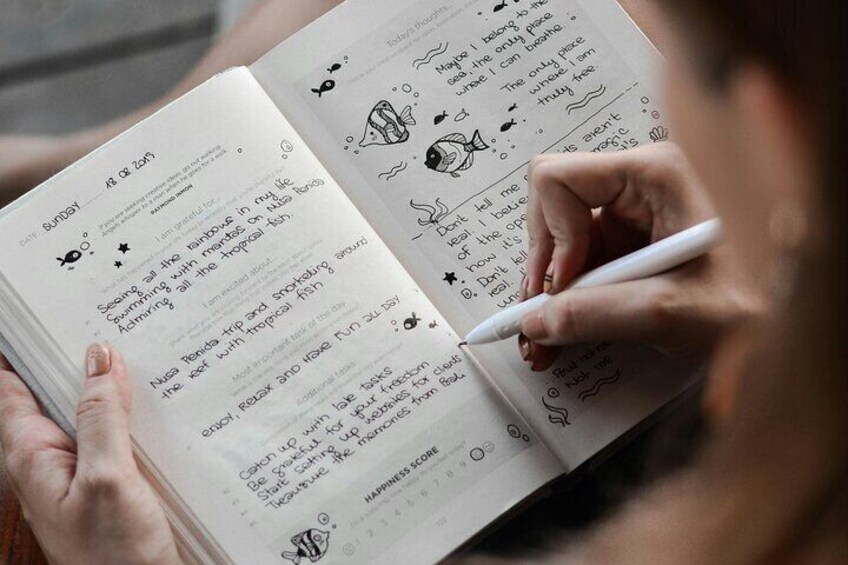 DATE: SUNDAY 18 08 2019
If you are seeking creative ideas, go out walking.
Angels whisper to a man when he goes for a walk.
RAYMOND INMON
I am grateful for
Seeing all the rainbows in my life
Swimming with mantas on Nusa Penida
Admiring all the tropical fish.
I am excited about
Nusa Penida trip and snorkeling around
the reef with tropical fish
Most important task of the day
ENJOY, RELAX AND HAVE FUN ALL DAY
Additional tasks
Catch up with late tasks
Be grateful for your freedom
Start setting up websites for clients
Treasure the memories from Bali
HAPPINESS SCORE
1 2 3 4 5 6 7 8 9
Today's thoughts
Maybe I belong to the
sea, the only place
where I can breathe
The only place
where I am
truly free.
Don't tell me
aren't
real. I believe
magic
of the
how it's
Don't
real
Not me